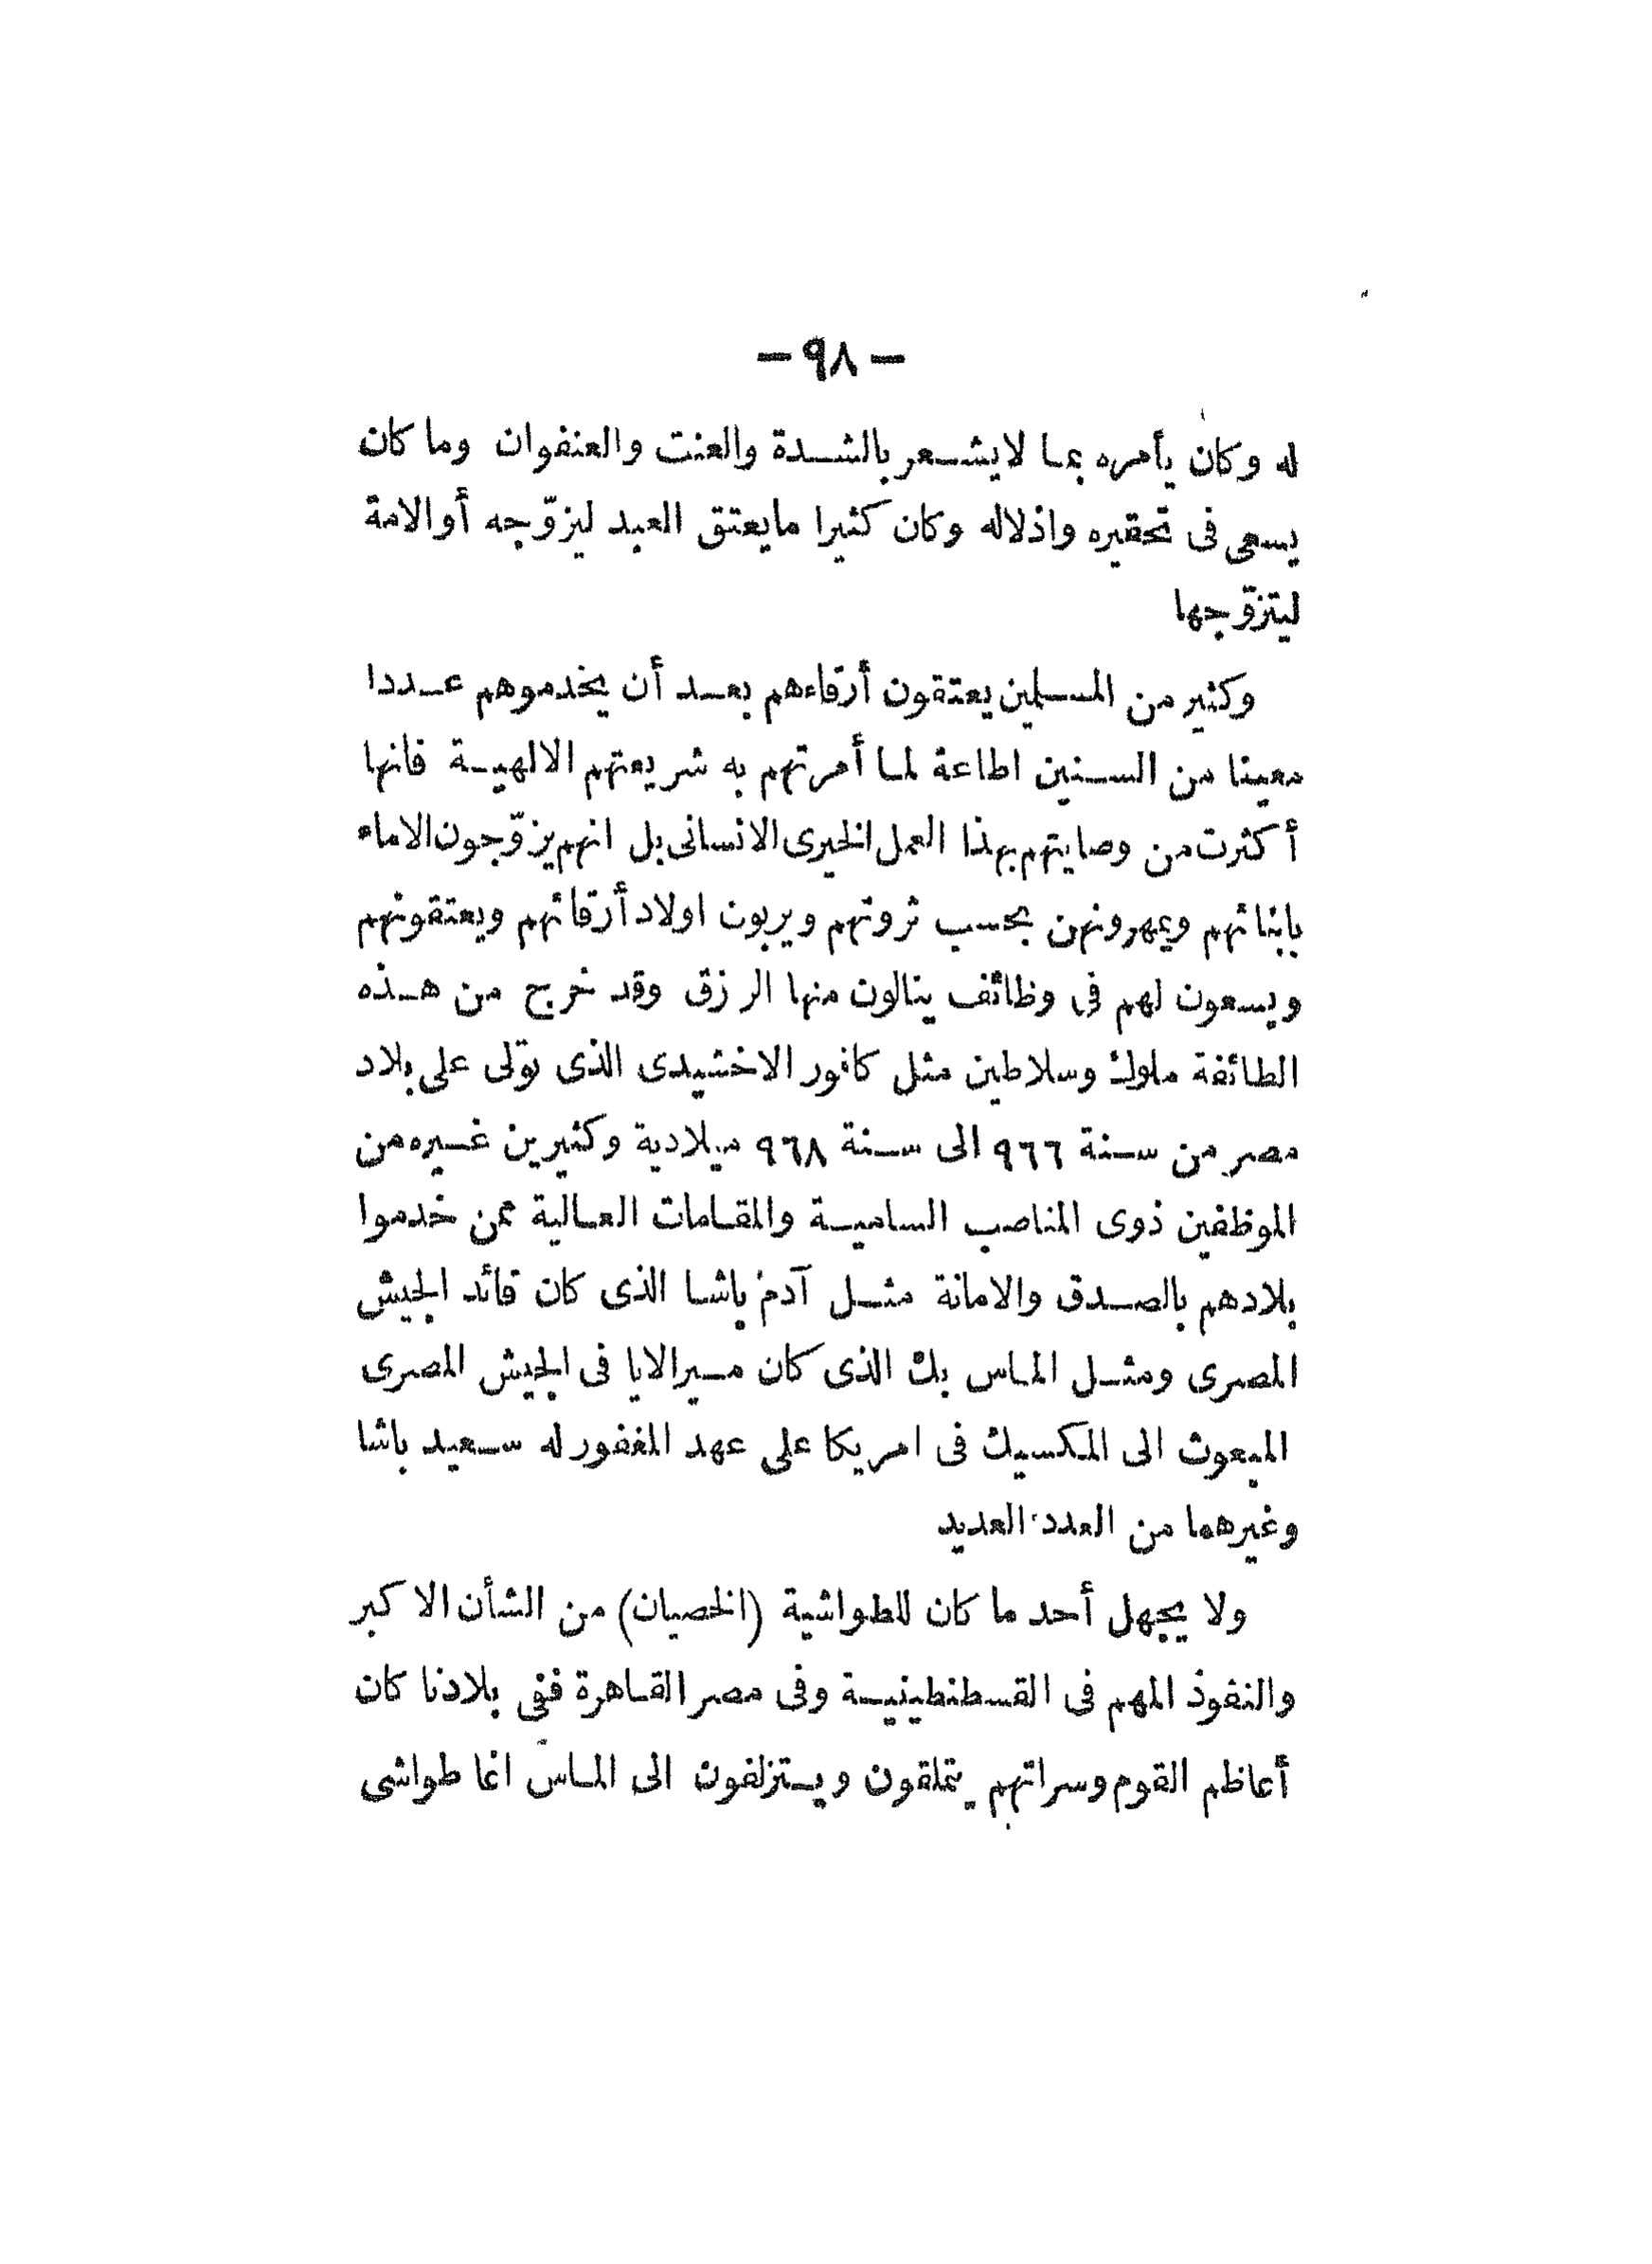 — ٩٨ —
له وكان يأمره بما لايشعر بالشدة والعنت والعنفوان وما كان
يسعى فى تحقيره واذلاله وكان كثيرا مايعتق العبد ليزوّجه أو الامة
ليتزوّجها
وكثير من المسلمين يعتقون أرقاءهم بعد أن يخدموهم عددا
معينا من السنين اطاعة لما أمرتهم به شريعتهم الالهية فانها
أكثرت من وصايتهم بهذا العمل الخيرى الانسانى بل انهم يزوّجون الاماء
بابنائهم ويمهرونهن بحسب ثروتهم ويربون اولاد أرقائهم ويعتقونهم
ويسعون لهم فى وظائف ينالون منها الرزق وقد خرج من هذه
الطائفة ملوك وسلاطين مثل كافور الاخشيدى الذى تولى على بلاد
مصر من سنة ٩٦٦ الى سنة ٩٦٨ ميلادية وكثيرين غيره من
الموظفين ذوى المناصب السامية والمقامات العالية ممن خدموا
بلادهم بالصدق والامانة مثل آدم باشا الذى كان قائد الجيش
المصرى ومثل الماس بك الذى كان ميرالايا فى الجيش المصرى
المبعوث الى المكسيك فى امريكا على عهد المغفور له سعيد باشا
وغيرهما من العدد العديد
ولا يجهل أحد ما كان للطواشية (الخصيان) من الشأن الاكبر
والنفوذ المهم فى القسطنطينية وفى مصر القاهرة ففى بلادنا كان
أعاظم القوم وسراتهم يتملقون ويستزلفون الى الماس اغا طواشى